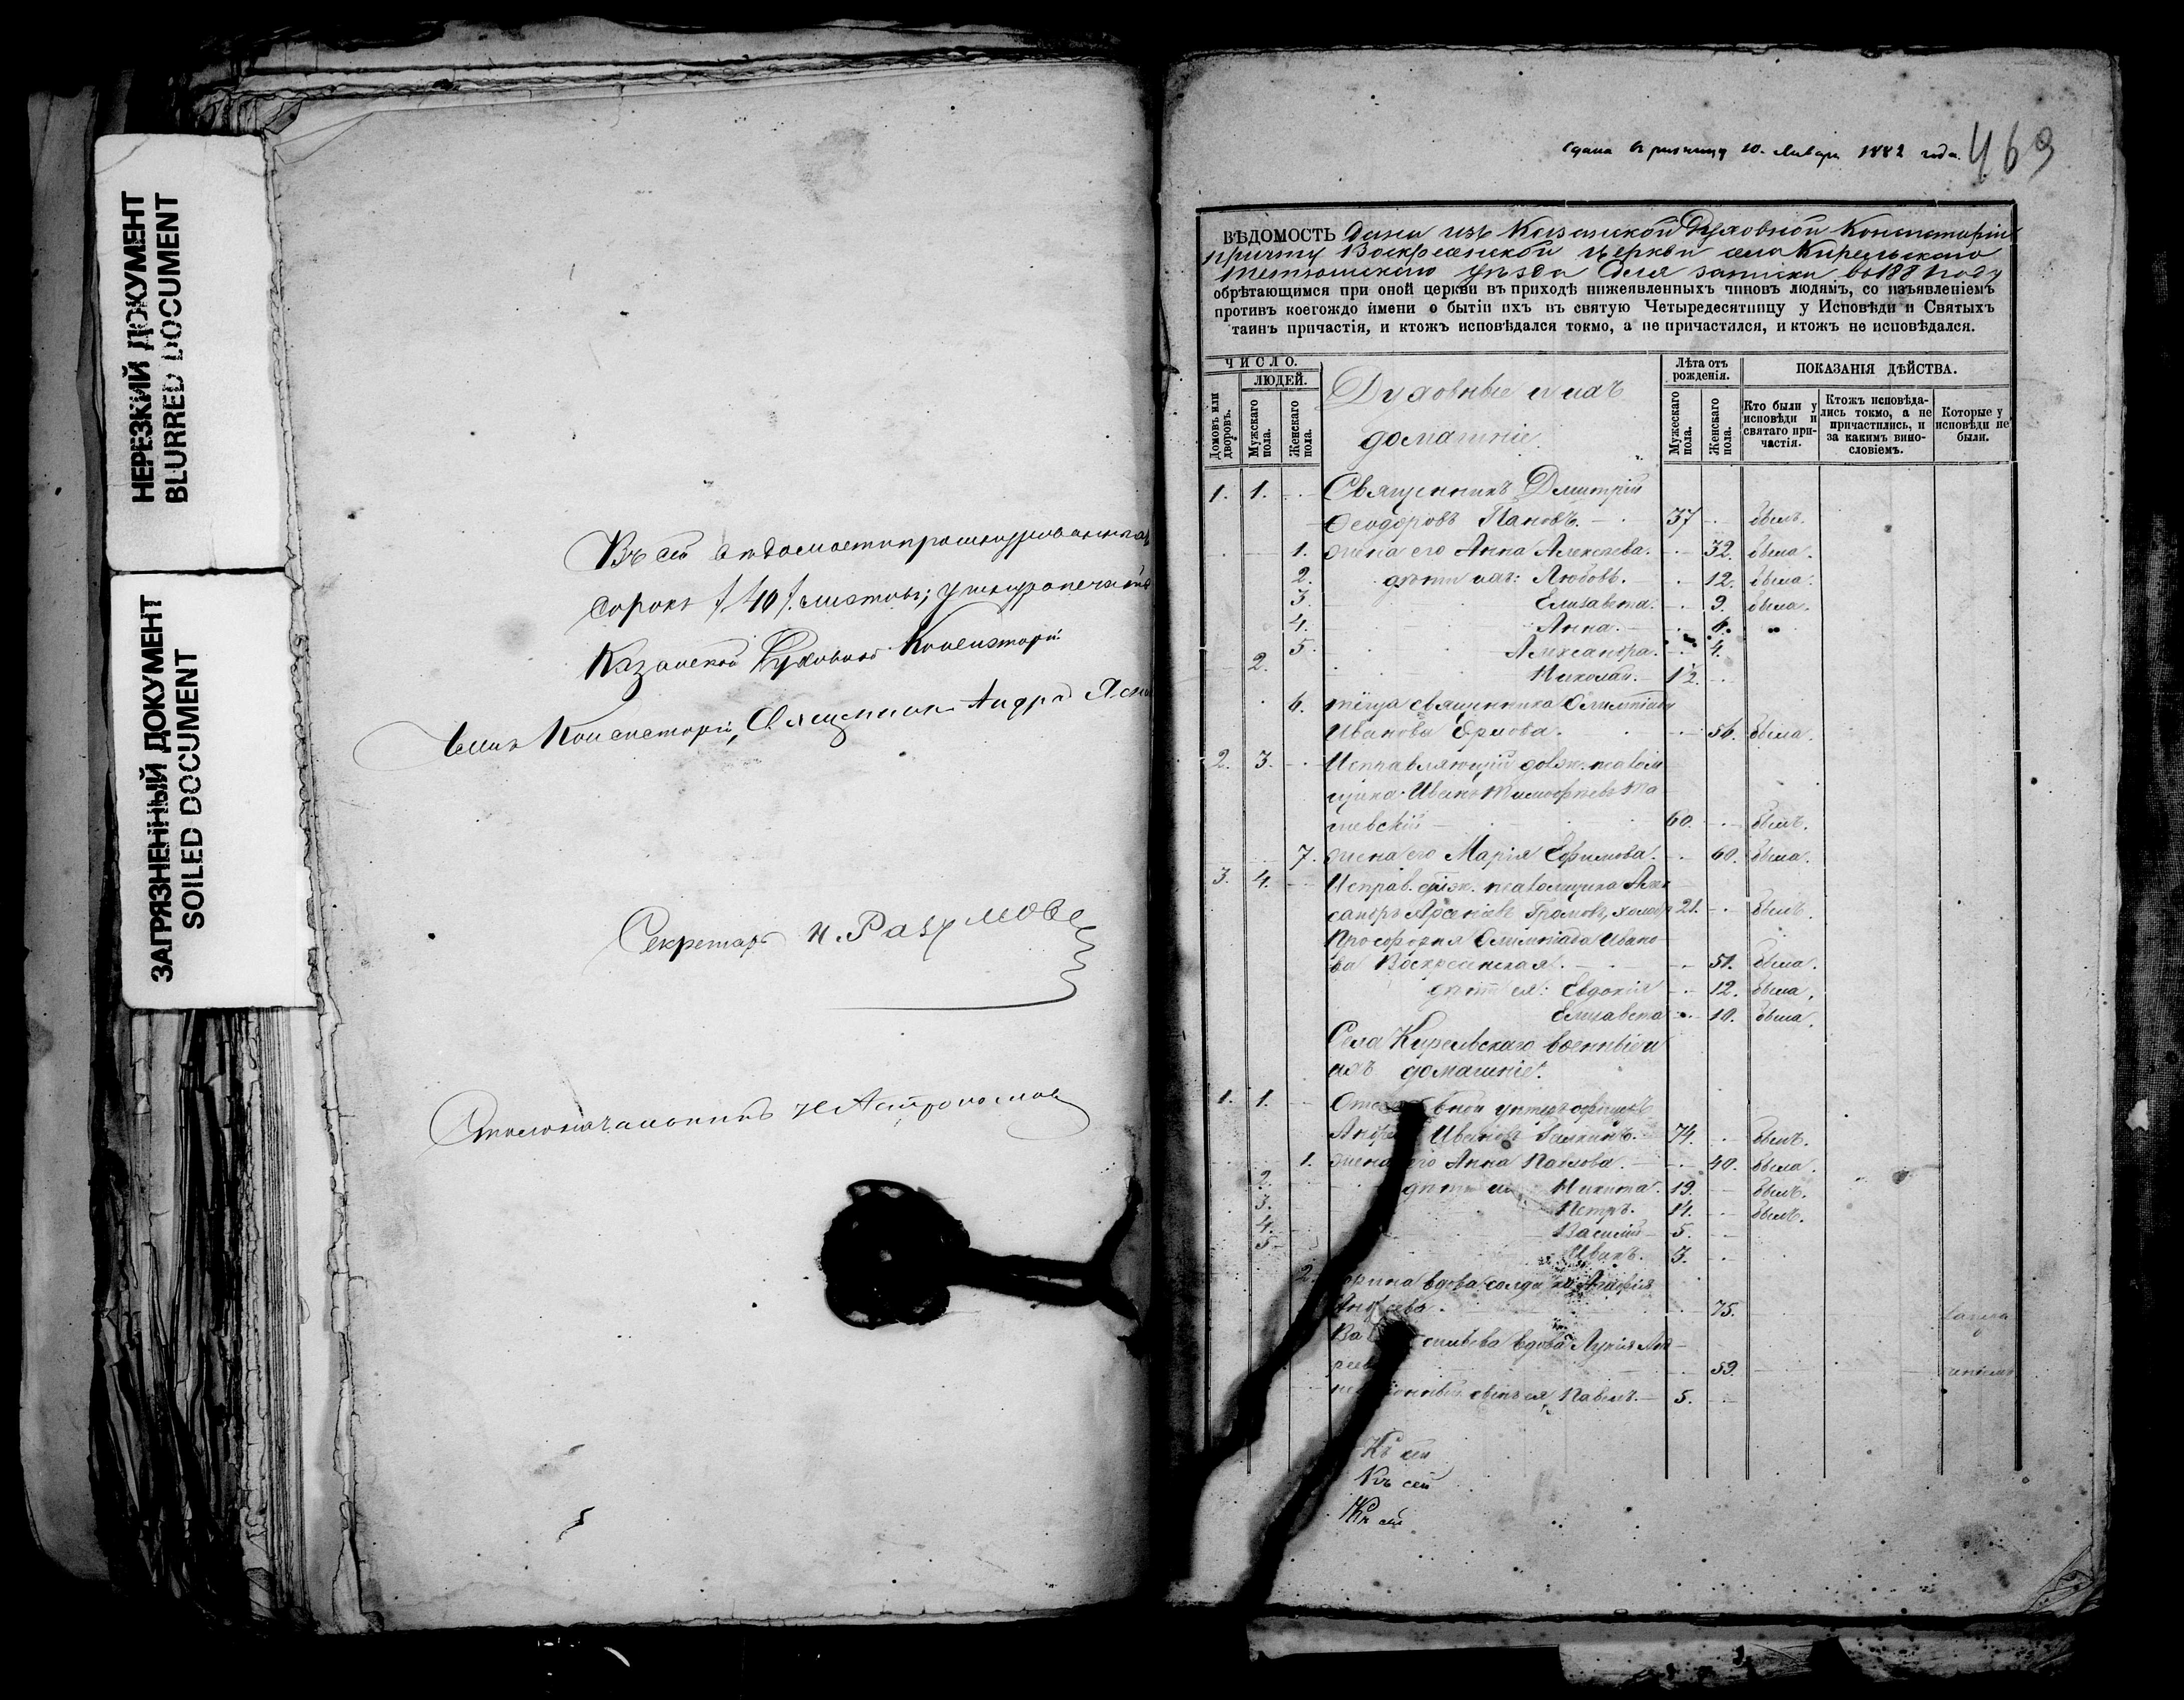 НЕРЕЗКИЙ ДОКУМЕНТ
BLURRED DOCUMENT
ЗАГРЯЗНЕННЫЙ ДОКУМЕНТ
SOILED DOCUMENT
Въ сей ведомости прошнурованныхъ
сорокъ /40/ листовъ; у шнура печать
Казанской Духовной Консисторіи.
Членъ Консисторіи, Священникъ Андрей
Секретарь И. Разумовъ
Столоначальникъ Н Астрономовъ
Сдана въ ризницу 10. Января 1882 года.
469
ВѢДОМОСТЬ Дана изъ Казанской Духовной Консисторіи
причту Воскресенской церкви села Кирельскаго
Тетюшскаго уѣзда для записки въ 1881 году
обрѣтающимся при оной церкви въ приходѣ нижеявленныхъ чиновъ людямъ, со изъявленіемъ
противъ коегождо имени о бытіи ихъ въ святую Четыредесятницу у Исповѣди и Святыхъ
таинъ причастія, и ктожъ исповѣдался токмо, а не причастился, и ктожъ не исповѣдался.
ЧИСЛО.
Домовъ или дворовъ.
ЛЮДЕЙ.
Мужскаго пола.
Женскаго пола.
Духовные и ихъ
домашніе.
Лѣта отъ рожденія.
Мужескаго пола.
Женскаго пола.
ПОКАЗАНІЯ ДѢЙСТВА.
Кто были у исповѣди и святаго причастія.
Ктожъ исповѣдались токмо, а не причастились, и за какимъ винословіемъ.
Которые у исповѣди не были.
1. 1. Священникъ Дмитрій
Ѳеодоровъ Пановъ. 37 былъ.
1. жена его Анна Алексѣева. 32. была.
2. дѣти ихъ: Любовь. 12. была.
3. Елизавета. 9. была.
4. Анна.
5. Александра. 4.
2. Николай. 1½.
6. тёща священника Олимпіада
Иванова 56. была.
2. 3. Исправляющій долж. псалом
щика Иванъ Тимофѣевъ
60. былъ.
7. жена его Марія Ефимова. 60. была.
3. 4. Исправ. долж. псаломщика Алек
сандръ Арсеніевъ Громовъ, холост 21. былъ.
Просфорня Олимпіада Ивано
ва Воскресенская. 51. была.
дѣти ея: Евдокія 12. была.
Елизавета 10. была.
Села Кирельскаго военные и
ихъ домашніе.
1. 1. унтеръ офицеръ
Иванов Галкинъ. 74. былъ.
1. жена его Анна Павлова. 40. была.
2. дѣти Никита. 19. былъ.
3. Петръ. 14. былъ.
4. Василій 5.
5 Иванъ. 3.
2. вдова
75.
вдова
59.
Павелъ. 5.
Къ сей
Къ сей
Къ сей